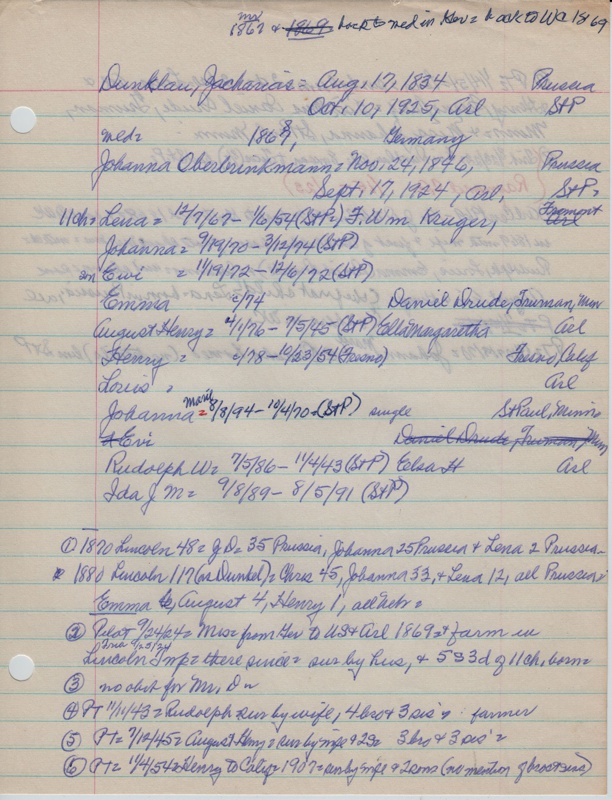 1867 & 1869 back to Wa 1869
Dunklau, Zacharias = Aug, 17, 1834 Prussia
Oct. 10, 1925, Arl StP
med= 1867, Germany
Johanna Oberbrinkmann = Nov, 24, 1846, Prussia
Sept. 17, 1924, Arl, StP=
11ch= Lena = 12/7/67 - 1/6/54 (StP=) F. Wm Kruger, Fremont Arl
Johanna = 9/19/70 - 3/12/74 (StP)
Ewi = 11/19/72 - 12/6/72 (StP)
Emma c/74 Daniel Drude, Truman, Minn
August Henry = 2/1/76 - 7/5/45 (StP) Ella Margaretha Arl
Henry = c/78 - 10/23/54 (Fresno) Fresno, Calif
Louis = Arl
Johanna Marie = 8/3/94 - 10/4/70 = (StP) single St Paul, Minn
Evi Daniel Drude, Truman, Minn
Rudolph W = 7/5/86 - 11/4/43 (StP) Elsa H Arl
Ida J M = 9/8/89 - 8/5/91 (StP)
① 1870 Lincoln 48 = J D = 35 Prussia, Johanna 25 Prussia & Lena 2 Prussia
1880 Lincoln 117 (or Dunkel) = Chris 45, Johanna 33, & Lena 12, all Prussia =
Emma 6, August 4, Henry 1, all Neb =
② Pilot 9/24/24 = Mrs = from Ger to US & Arl 1869 = & farm in
Lincoln Twp = there since = sur by hus, & 5 S 3 d of 11 ch, born =
③ no obit for Mr, D =
④ PT 11/11/43 = Rudolph = sur by wife, 4 bro & 3 sis's = farmer
⑤ PT = 7/12/45 = August Henry = sur by wife & 2 S = 3 bro & 3 sis' =
⑥ PT = 11/4/54 = Henry to Calif = 1907 = sur by wife & 2 sons (no mention of bros & sis)